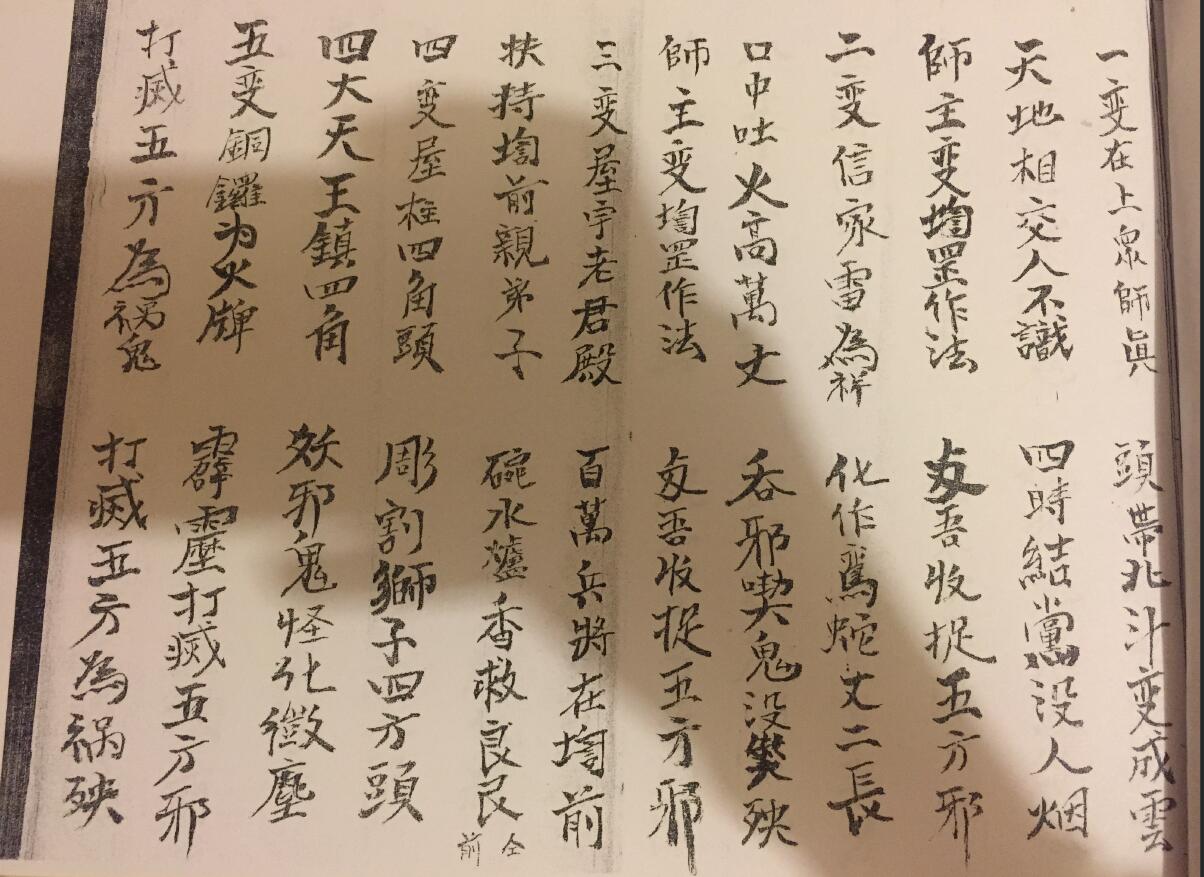 一变在上眾師眞 頭帶北斗变成雲
天地相交人不識 四時結黨没人烟
師主变壇罡作法 交吾收捉五方邪
二变信家雷為祥 化作鳶蛇丈二長
口中吐火高萬丈 吞邪喫鬼没殃
師主变壇罡作法 交吾收捉五方邪
三变屋宇老君殿 百萬兵將在壇前
扶持壇前親弟子 碗水爐香救良民
仝前
四变屋柱四角頭 彫割獅子四方頭
四大天王鎮四角 妖邪鬼怪化微塵
五变銅鑼为火牌 霹靂打滅五方邪
打滅五方為禍鬼 打滅五方為禍殃